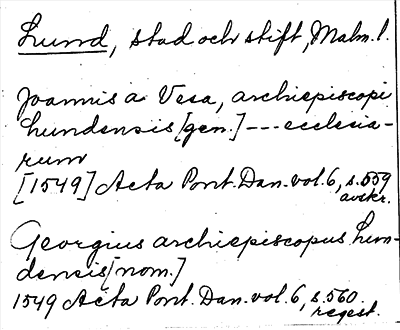 Lund, stad och stift, Malm. l.
Joannis a Vesa, archiepiscopi
Lundensis [gen.] --- ecclesia-
rum
[1549] Acta Pont. Dan. vol. 6, s. 559
avskr.
Georgius archiepiscopus Lun-
densis [nom.]
1549 Acta Pont. Dan. vol. 6, s. 560.
regest.